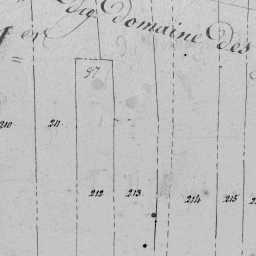 dig Domaine des
en
97
210 211 212 213 214 215